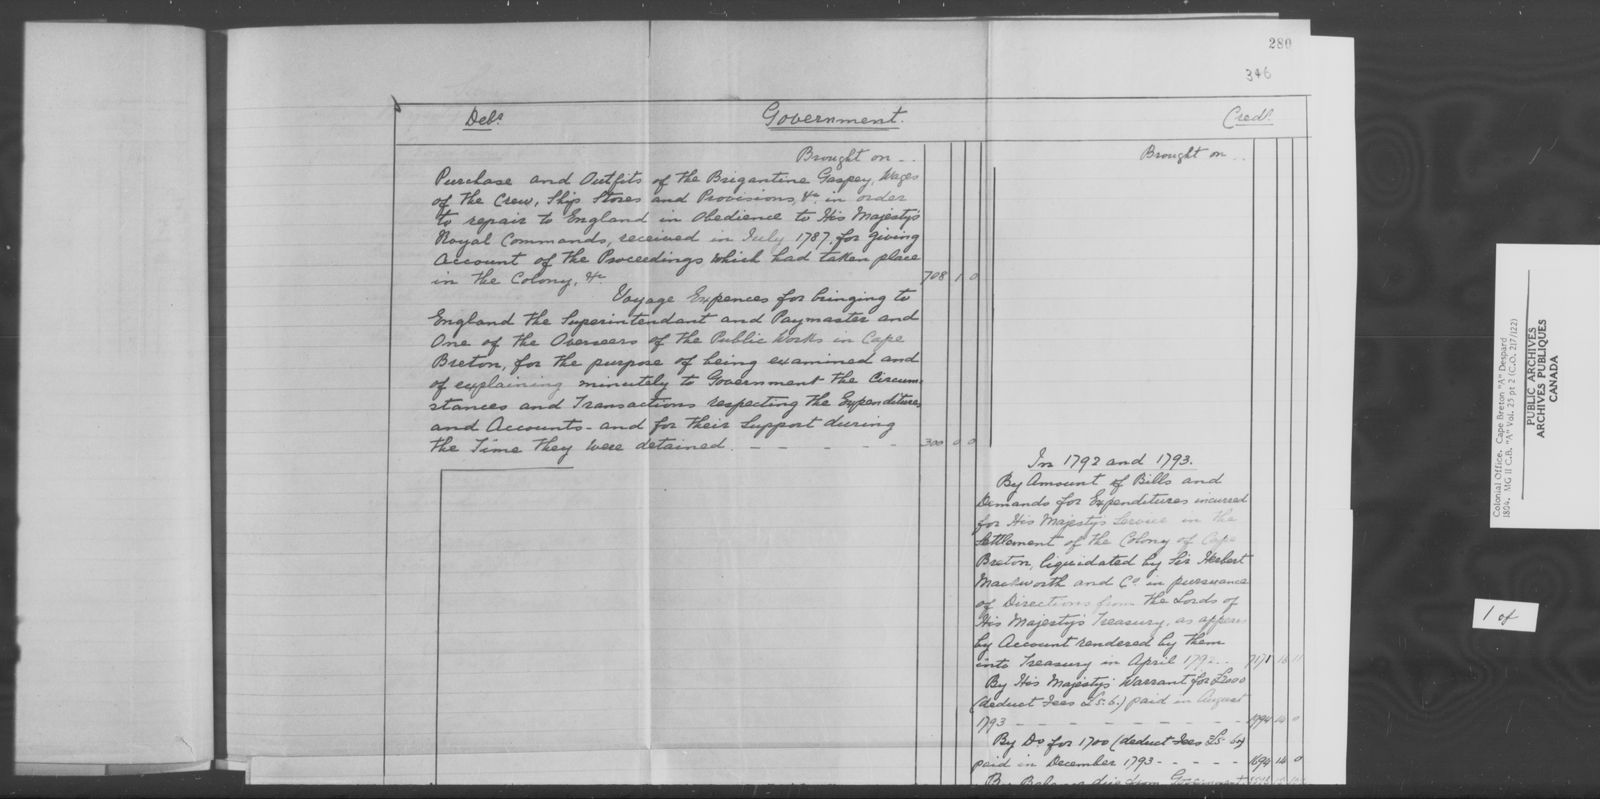 280
346
Debr.
Government.
Credr.
Brought on - ..
Purchase and Outfits of the Brigantine Gaspey, Wages
of the Crew, Ship Stores and Provisions, &c. in order
to repair to England in Obedience to His Majesty's
Royal Commands, received in July 1787. for giving
Account of the Proceedings which had taken place
in the Colony, &c 708 1 0
Voyage Expences for bringing to
England the Superintendant and Paymaster and
One of the Overseers of the Public Works in Cape
Breton, for the purpose of being examined and
of explaining minutely to Government the Circum-
stances and Transactions respecting the Expenditures
and Accounts - and for their Support during
the Time they were detained. - - - - - 300 0 0
Brought on ..
In 1792 and 1793.
By Amount of Bills and
Demands for Expenditures incurred
for His Majesty's Service in the
Settlement of the Colony of Cape
Breton, liquidated by Sir Herbert
Mackworth and Co. in pursuance
of Directions from the Lords of
His Majesty's Treasury, as appears
by Account rendered by them
into Treasury in April 1792 .. 7171 16 11
By His Majesty's Warrant for £2000
(deduct Fees £5. 6.) paid in August
1793 - - - - - - - - - 14 0
By Do. for 1700 (deduct Fees £5 6)
paid in December 1793 - - - - - 1694 14 0
By Balance due from Government
Colonial Office. Cape Breton "A" Despard
1804. MG 11 C.B. "A" Vol. 25 pt 2 (C.O. 217/122)
PUBLIC ARCHIVES
ARCHIVES PUBLIQUES
CANADA
1 of